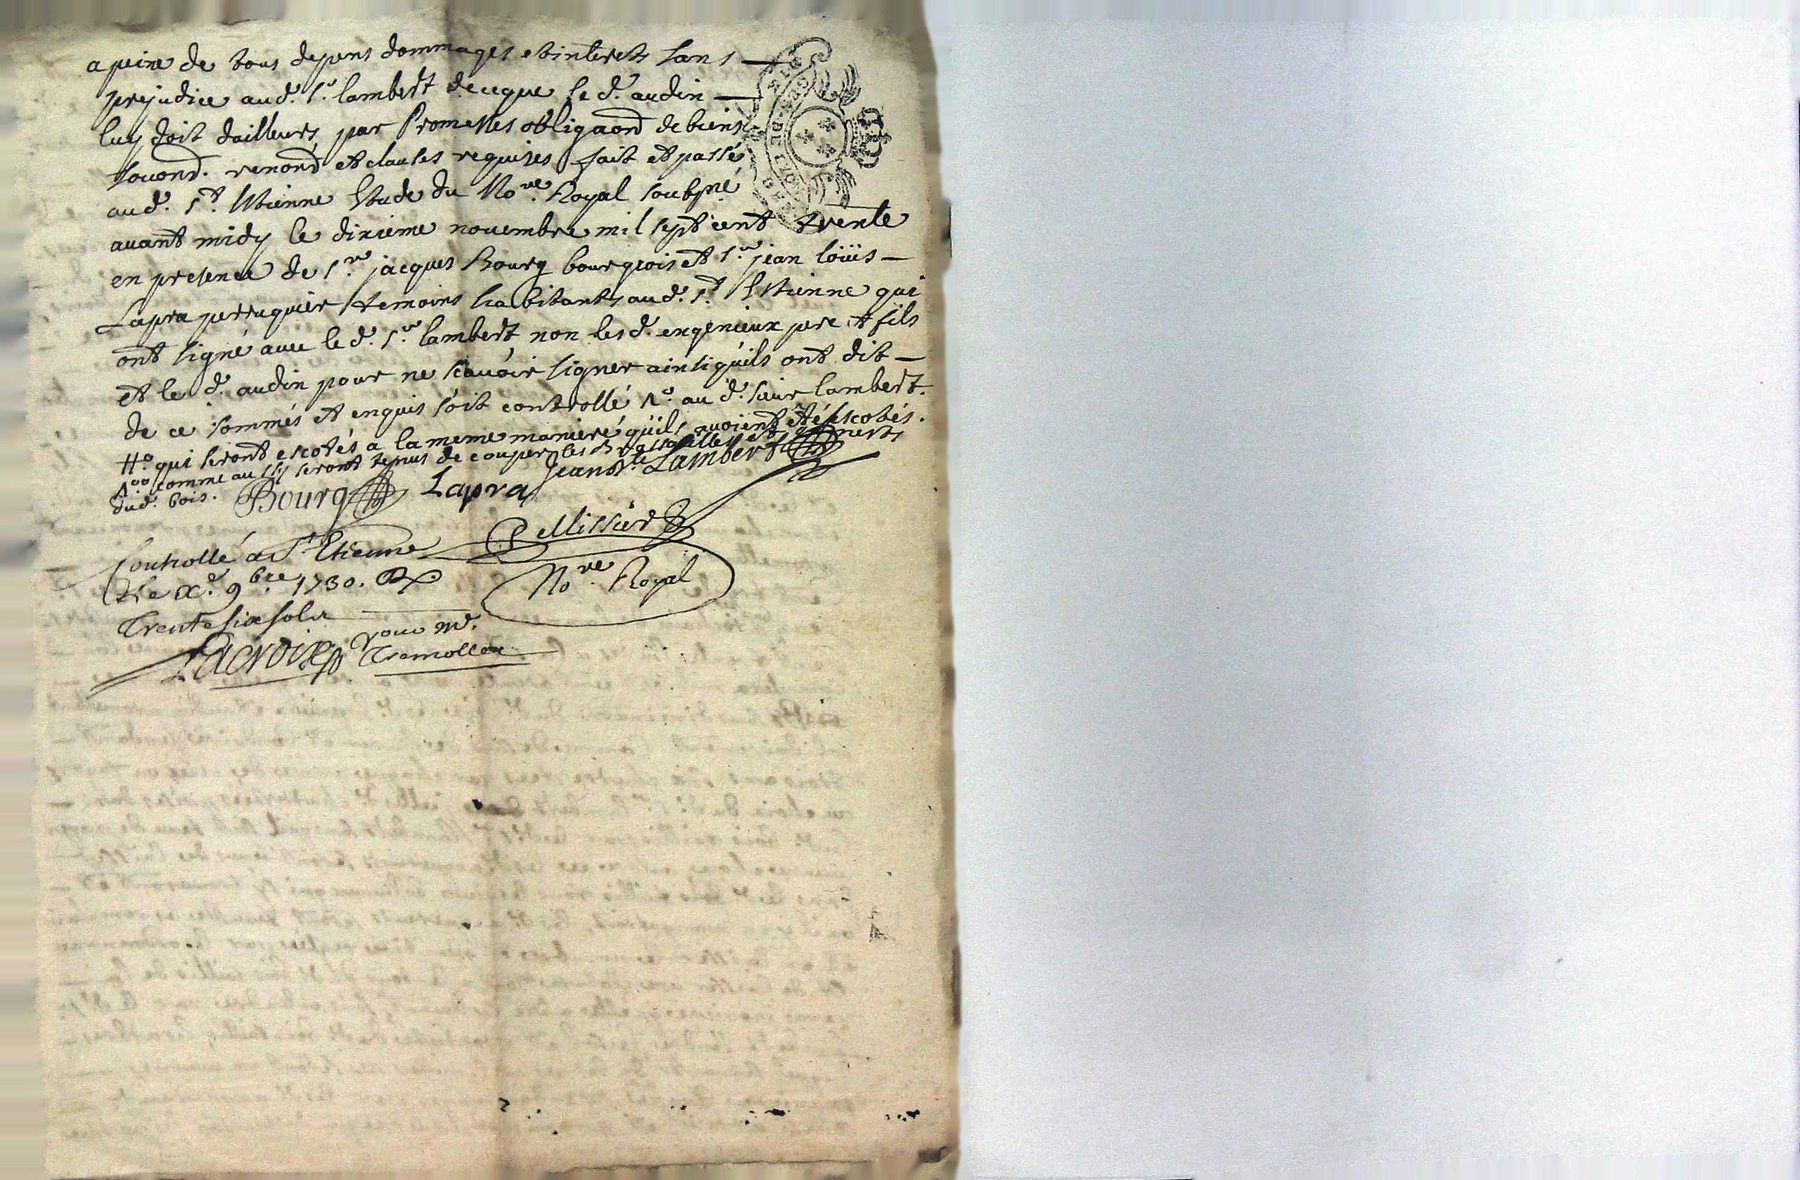 a peine de tous depens dommages et interets sans
prejudice aud. Sr. lambert de ceque le d. audin
luy doit dailleurs par Promesses obligaond de biens
soumond. renond et clauses requises fait et passé
aud. St. Estienne Etude du Nore. Royal soubsné
avant midy le dixieme novembre mil sept cent trente
en presence de Sr. jacques Bourg bourgeois et Sr. jean loüis
Lapra perruquier temoins habitants aud. St. Estienne qui
ont signé avec le d. Sr. lambert non les d. engenieux pere et fils
et le d. audin pour ne scavoir signer ainsi quils ont dit
de ce sommés et enquis soit controllé aud. sieur lambert.
qui seront escotés a la meme maniere quils avoient été escotés.
comme aussy seront tenus de couper les
dud. bois. Bourg Lapra Lambert
Pellissier
Controllé a St Etienne
Le xe. 9bre 1730. R
Nore. Royal
Trente six sols
Lacroix pour Mr.
Tremollet